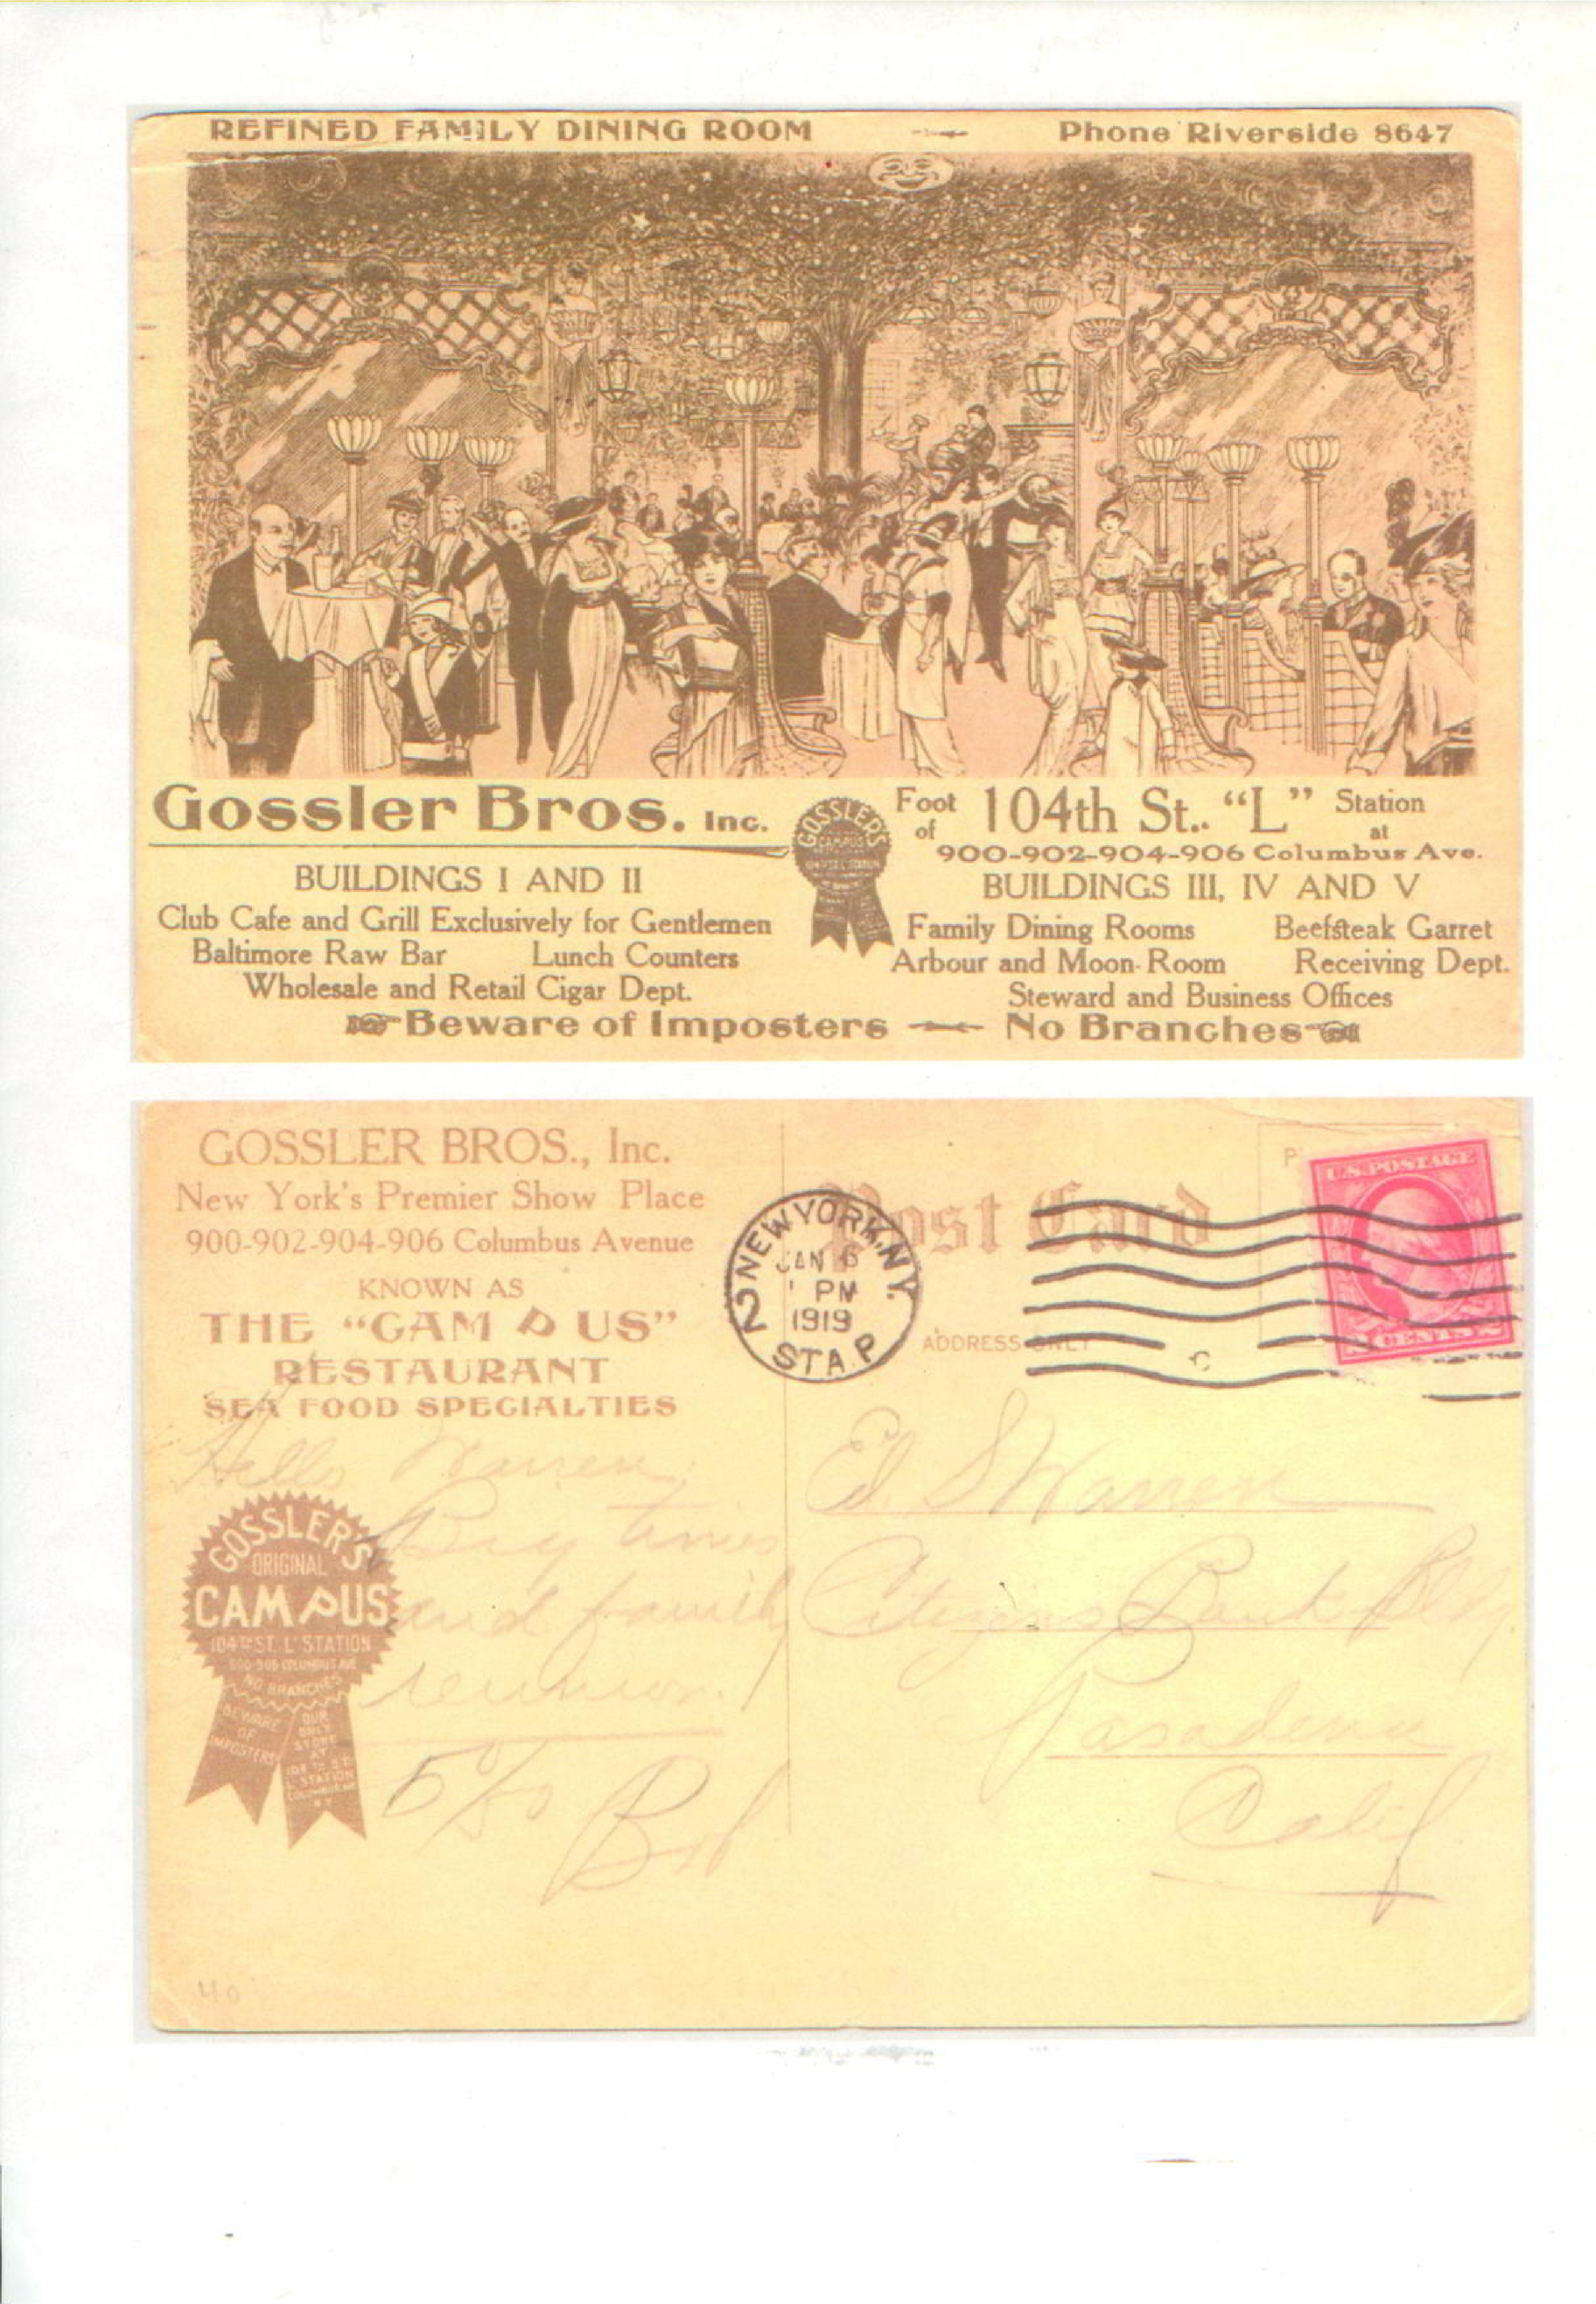 REFINED FAMILY DINING ROOM Phone Riverside 8647
Gossler Bros. Inc.
BUILDINGS I AND II
Club Cafe and Grill Exclusively for Gentlemen
Baltimore Raw Bar Lunch Counters
Wholesale and Retail Cigar Dept.
GOSSLER'S
CAMPUS
Foot of 104th St.. "L" Station
at
900-902-904-906 Columbus Ave.
BUILDINGS III, IV AND V
Family Dining Rooms Beefsteak Garret
Arbour and Moon-Room Receiving Dept.
Steward and Business Offices
Beware of Imposters No Branches
GOSSLER BROS., Inc.
New York's Premier Show Place
900-902-904-906 Columbus Avenue
KNOWN AS
THE "CAMPUS"
RESTAURANT
SEA FOOD SPECIALTIES
Hello Warren,
Big times
and family
reunion!
Bob
GOSSLER'S
ORIGINAL
CAMPUS
104TH ST. L STATION
900-906 COLUMBUS AVE
NO BRANCHES
BEWARE
OF
IMPOSTERS
OUR
ONLY
STORE
AT
104 TH ST.
L STATION
COLUMBUS AVE
N.Y.
Post Card
NEW YORK, N.Y.
JAN 6
1 PM
1919
2
STA. P
ADDRESS ONLY
U.S. POSTAGE
2 CENTS 2
Ed. S Warren
Citizens Bank Bldg.
Pasadena
Calif
40